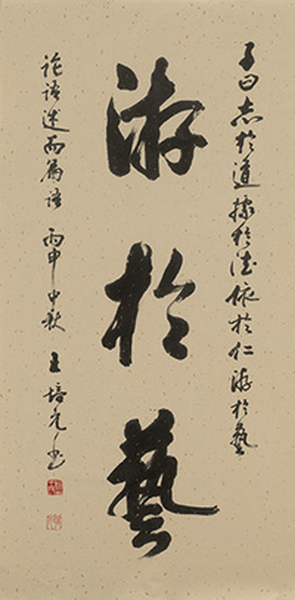 子曰志於道據於德依於仁游於藝
游於藝
论语述而篇语 丙申中秋 王培元书